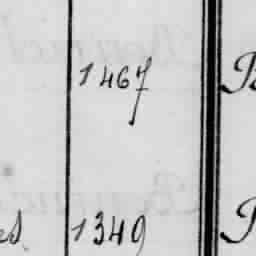 1467
es 1349